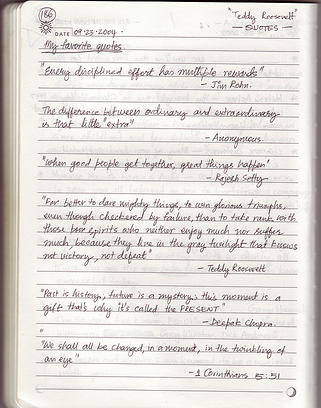 186
"Teddy Roosevelt"
— QUOTES —
DATE 09·23·2004·
My favorite quotes.
"Every disciplined effort has multiple rewards"
– Jim Rohn.
The difference between ordinary and extraordinary
is that little "extra"
– Anonymous.
"When good people get together, great things happen"
– Rajesh Setty
"Far better to dare mighty things, to win glorious triumphs,
even though checkered by failure, than to take rank with
those poor spirits who neither enjoy much nor suffer
much, because they live in the gray twilight that knows
not victory, not defeat"
– Teddy Roosevelt
"Past is history, future is a mystery; this moment is a
gift that's why it's called the PRESENT
– Deepak Chopra.
"
"We shall all be changed, in a moment, in the twinkling of
an eye"
– 1 Corinthians 5:51